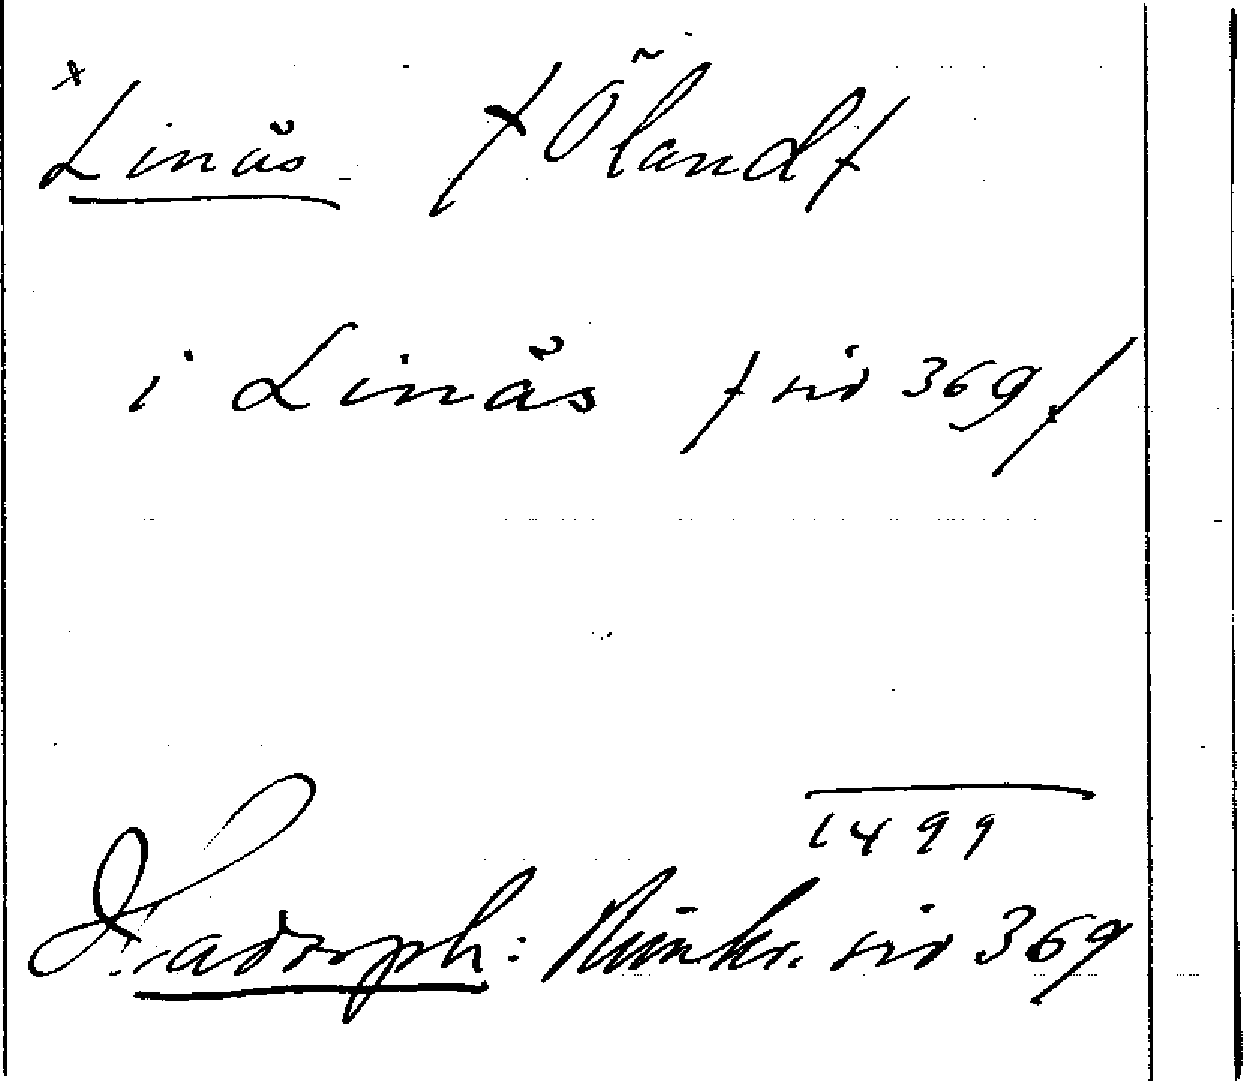 x
Linås /Öland/
i Linås / sid 369/
1499
Hadorph: Rimkr. sid 369